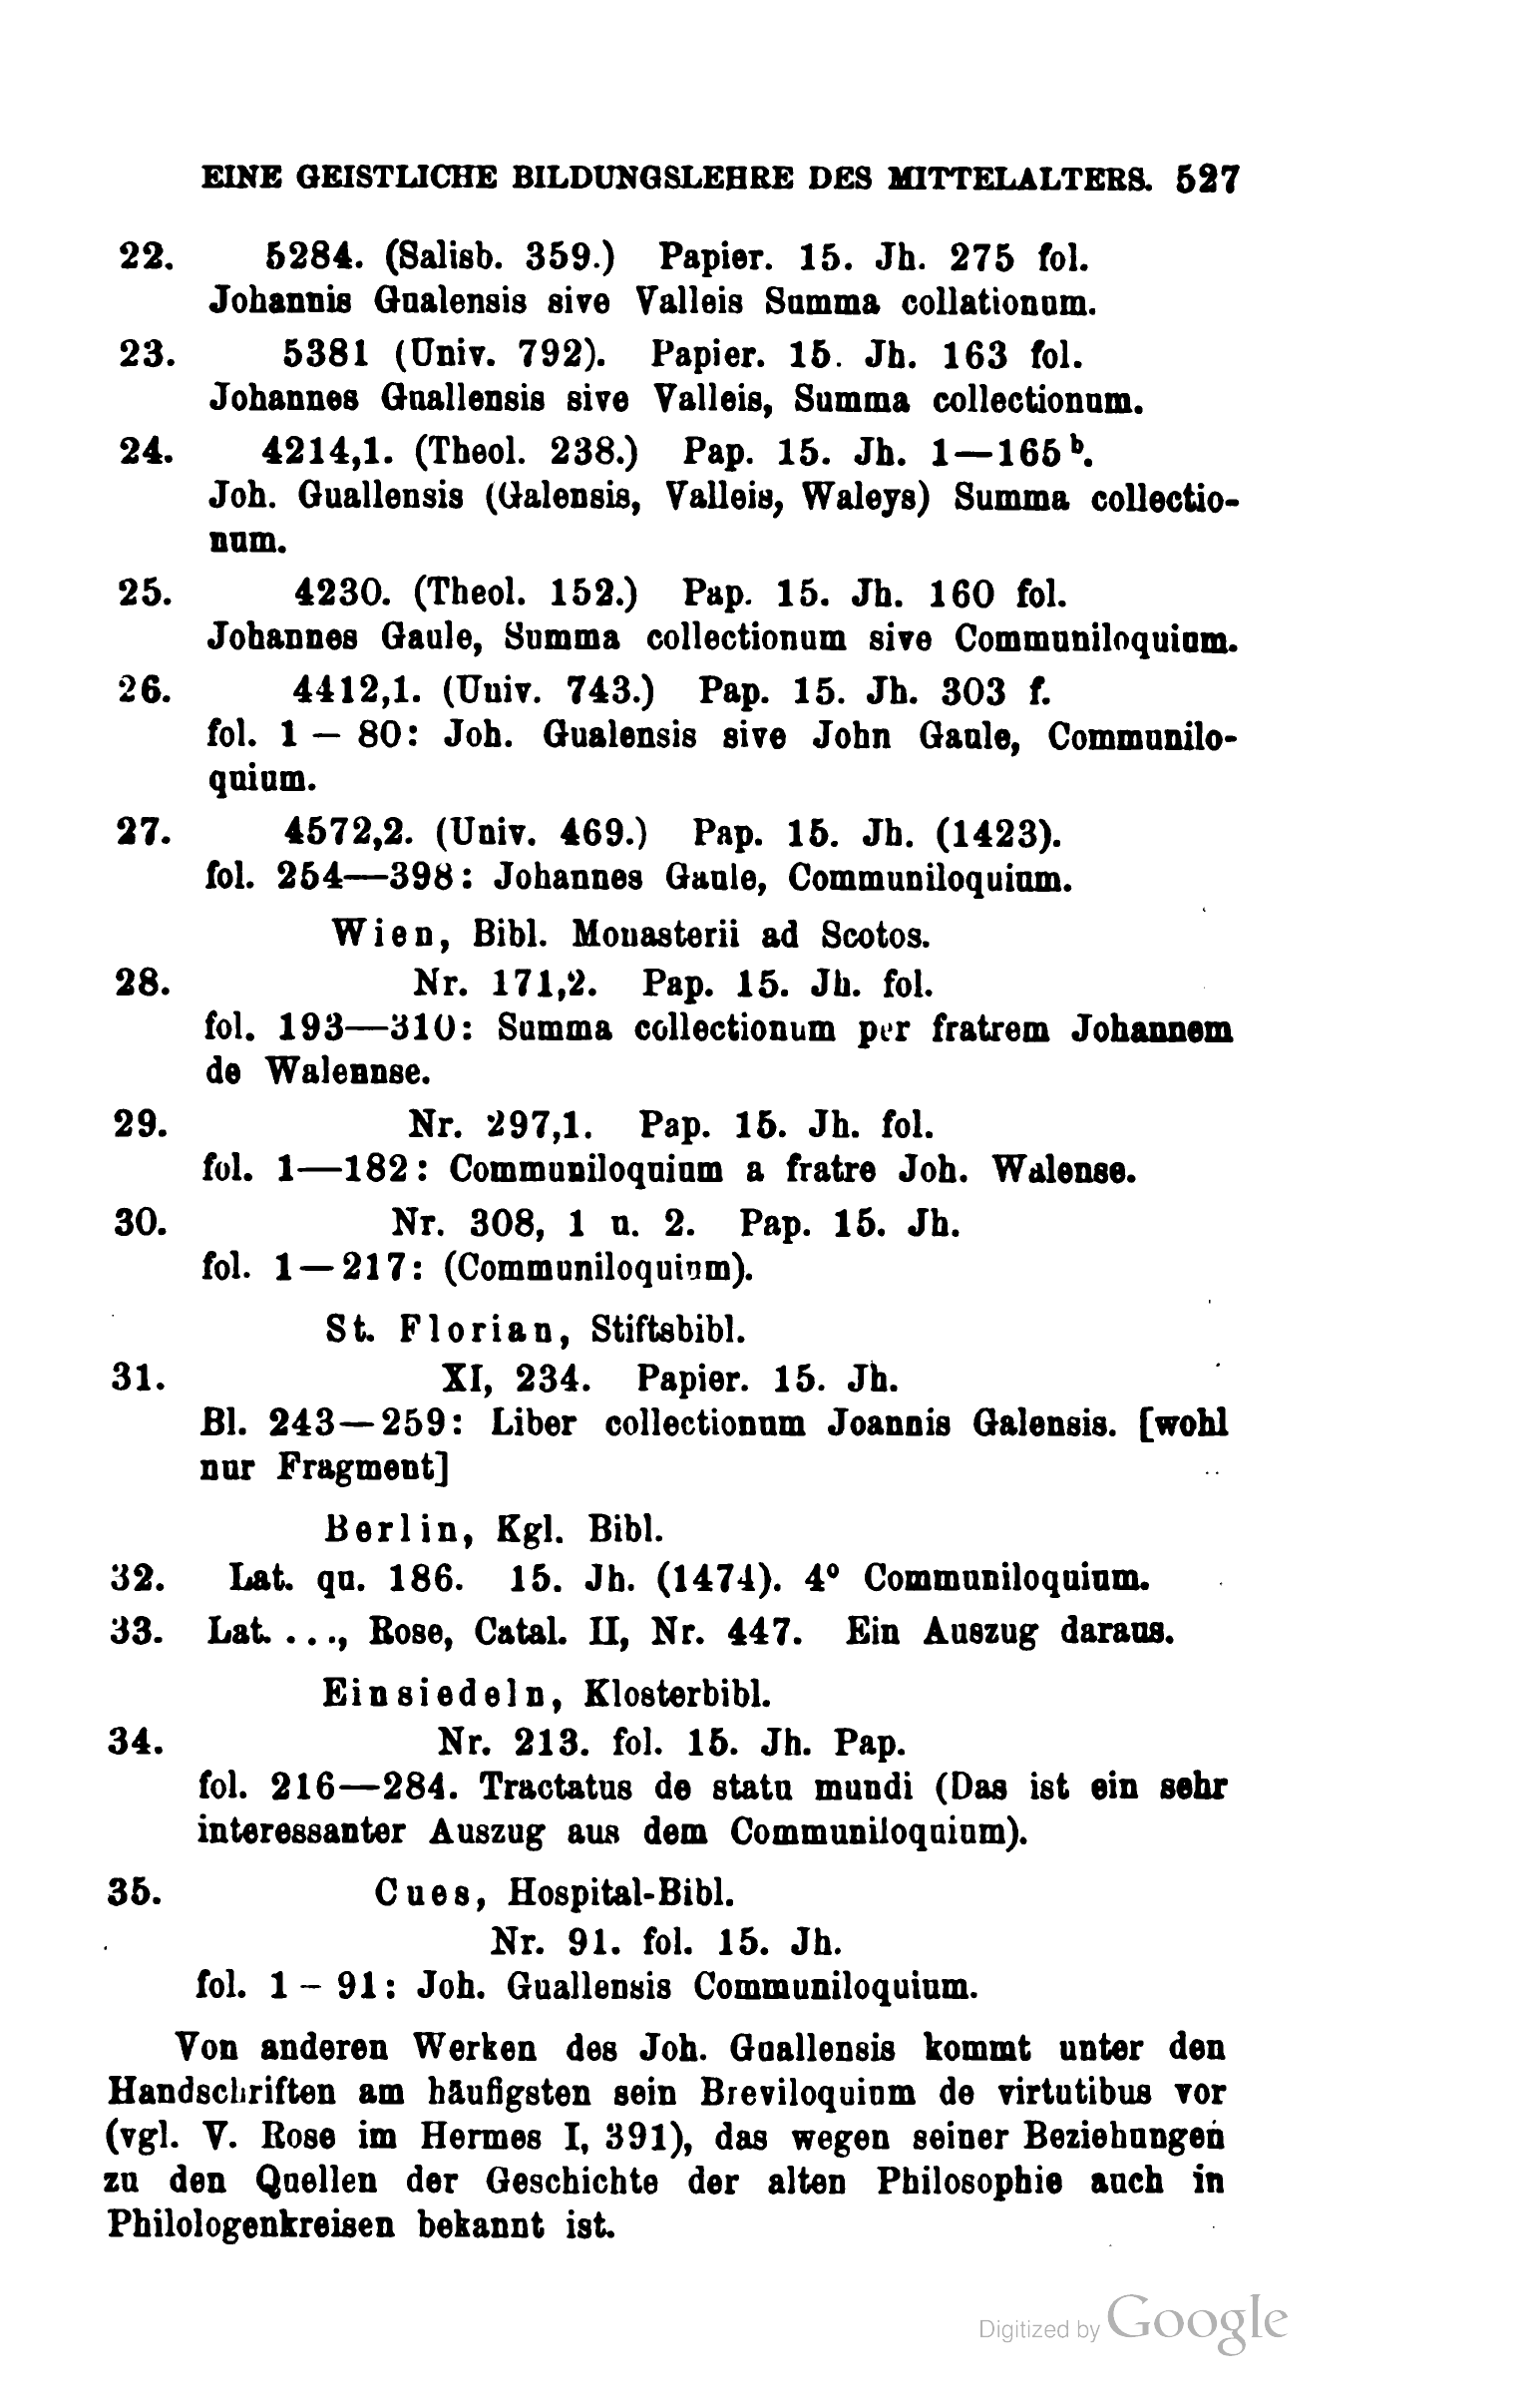 EINE GEISTLICHE BILDUNGSLEHRE DES MITTELALTERS. 527
22. 5284. (Salisb. 359.) Papier. 15. Jh. 275 fol.
Johannis Gualensis sive Valleis Summa collationum.
23. 5381 (Univ. 792). Papier. 15. Jh. 163 fol.
Johannes Guallensis sive Valleis, Summa collectionum.
24. 4214,1. (Theol. 238.) Pap. 15. Jh. 1—165 b.
Joh. Guallensis (Galensis, Valleis, Waleys) Summa collectio-
num.
25. 4230. (Theol. 152.) Pap. 15. Jh. 160 fol.
Johannes Gaule, Summa collectionum sive Communiloquium.
26. 4412,1. (Univ. 743.) Pap. 15. Jh. 303 f.
fol. 1 – 80: Joh. Gualensis sive John Gaule, Communilo-
quium.
27. 4572,2. (Univ. 469.) Pap. 15. Jh. (1423).
fol. 254—398: Johannes Gaule, Communiloquium.
Wien, Bibl. Monasterii ad Scotos.
28. Nr. 171,2. Pap. 15. Jh. fol.
fol. 193—310: Summa collectionum per fratrem Johannem
de Walennse.
29. Nr. 297,1. Pap. 15. Jh. fol.
fol. 1—182: Communiloquium a fratre Joh. Walense.
30. Nr. 308, 1 u. 2. Pap. 15. Jh.
fol. 1—217: (Communiloquium).
St. Florian, Stiftsbibl.
31. XI, 234. Papier. 15. Jh.
Bl. 243—259: Liber collectionum Joannis Galensis. [wohl
nur Fragment]
Berlin, Kgl. Bibl.
32. Lat. qu. 186. 15. Jh. (1474). 4° Communiloquium.
33. Lat. . . ., Rose, Catal. II, Nr. 447. Ein Auszug daraus.
Einsiedeln, Klosterbibl.
34. Nr. 213. fol. 15. Jh. Pap.
fol. 216—284. Tractatus de statu mundi (Das ist ein sehr
interessanter Auszug aus dem Communiloquium).
35. Cues, Hospital-Bibl.
Nr. 91. fol. 15. Jh.
fol. 1 – 91: Joh. Guallensis Communiloquium.
Von anderen Werken des Joh. Guallensis kommt unter den
Handschriften am häufigsten sein Breviloquium de virtutibus vor
(vgl. V. Rose im Hermes I, 391), das wegen seiner Beziehungen
zu den Quellen der Geschichte der alten Philosophie auch in
Philologenkreisen bekannt ist.
Digitized by Google